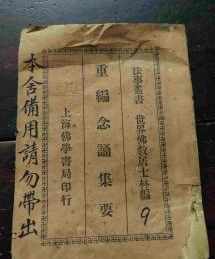 法事叢書 世界佛教居士林編
9
重編念誦集要
上海佛學書局印行
本舍備用請勿帶出